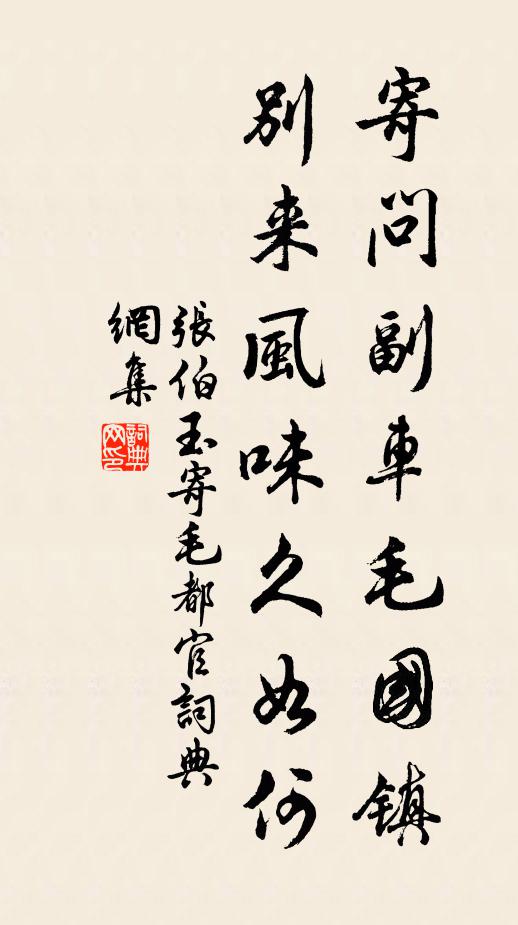 寄問副車毛國鎮
別来風味久如何
張伯玉寄毛都官詞典
網集
詞典網印